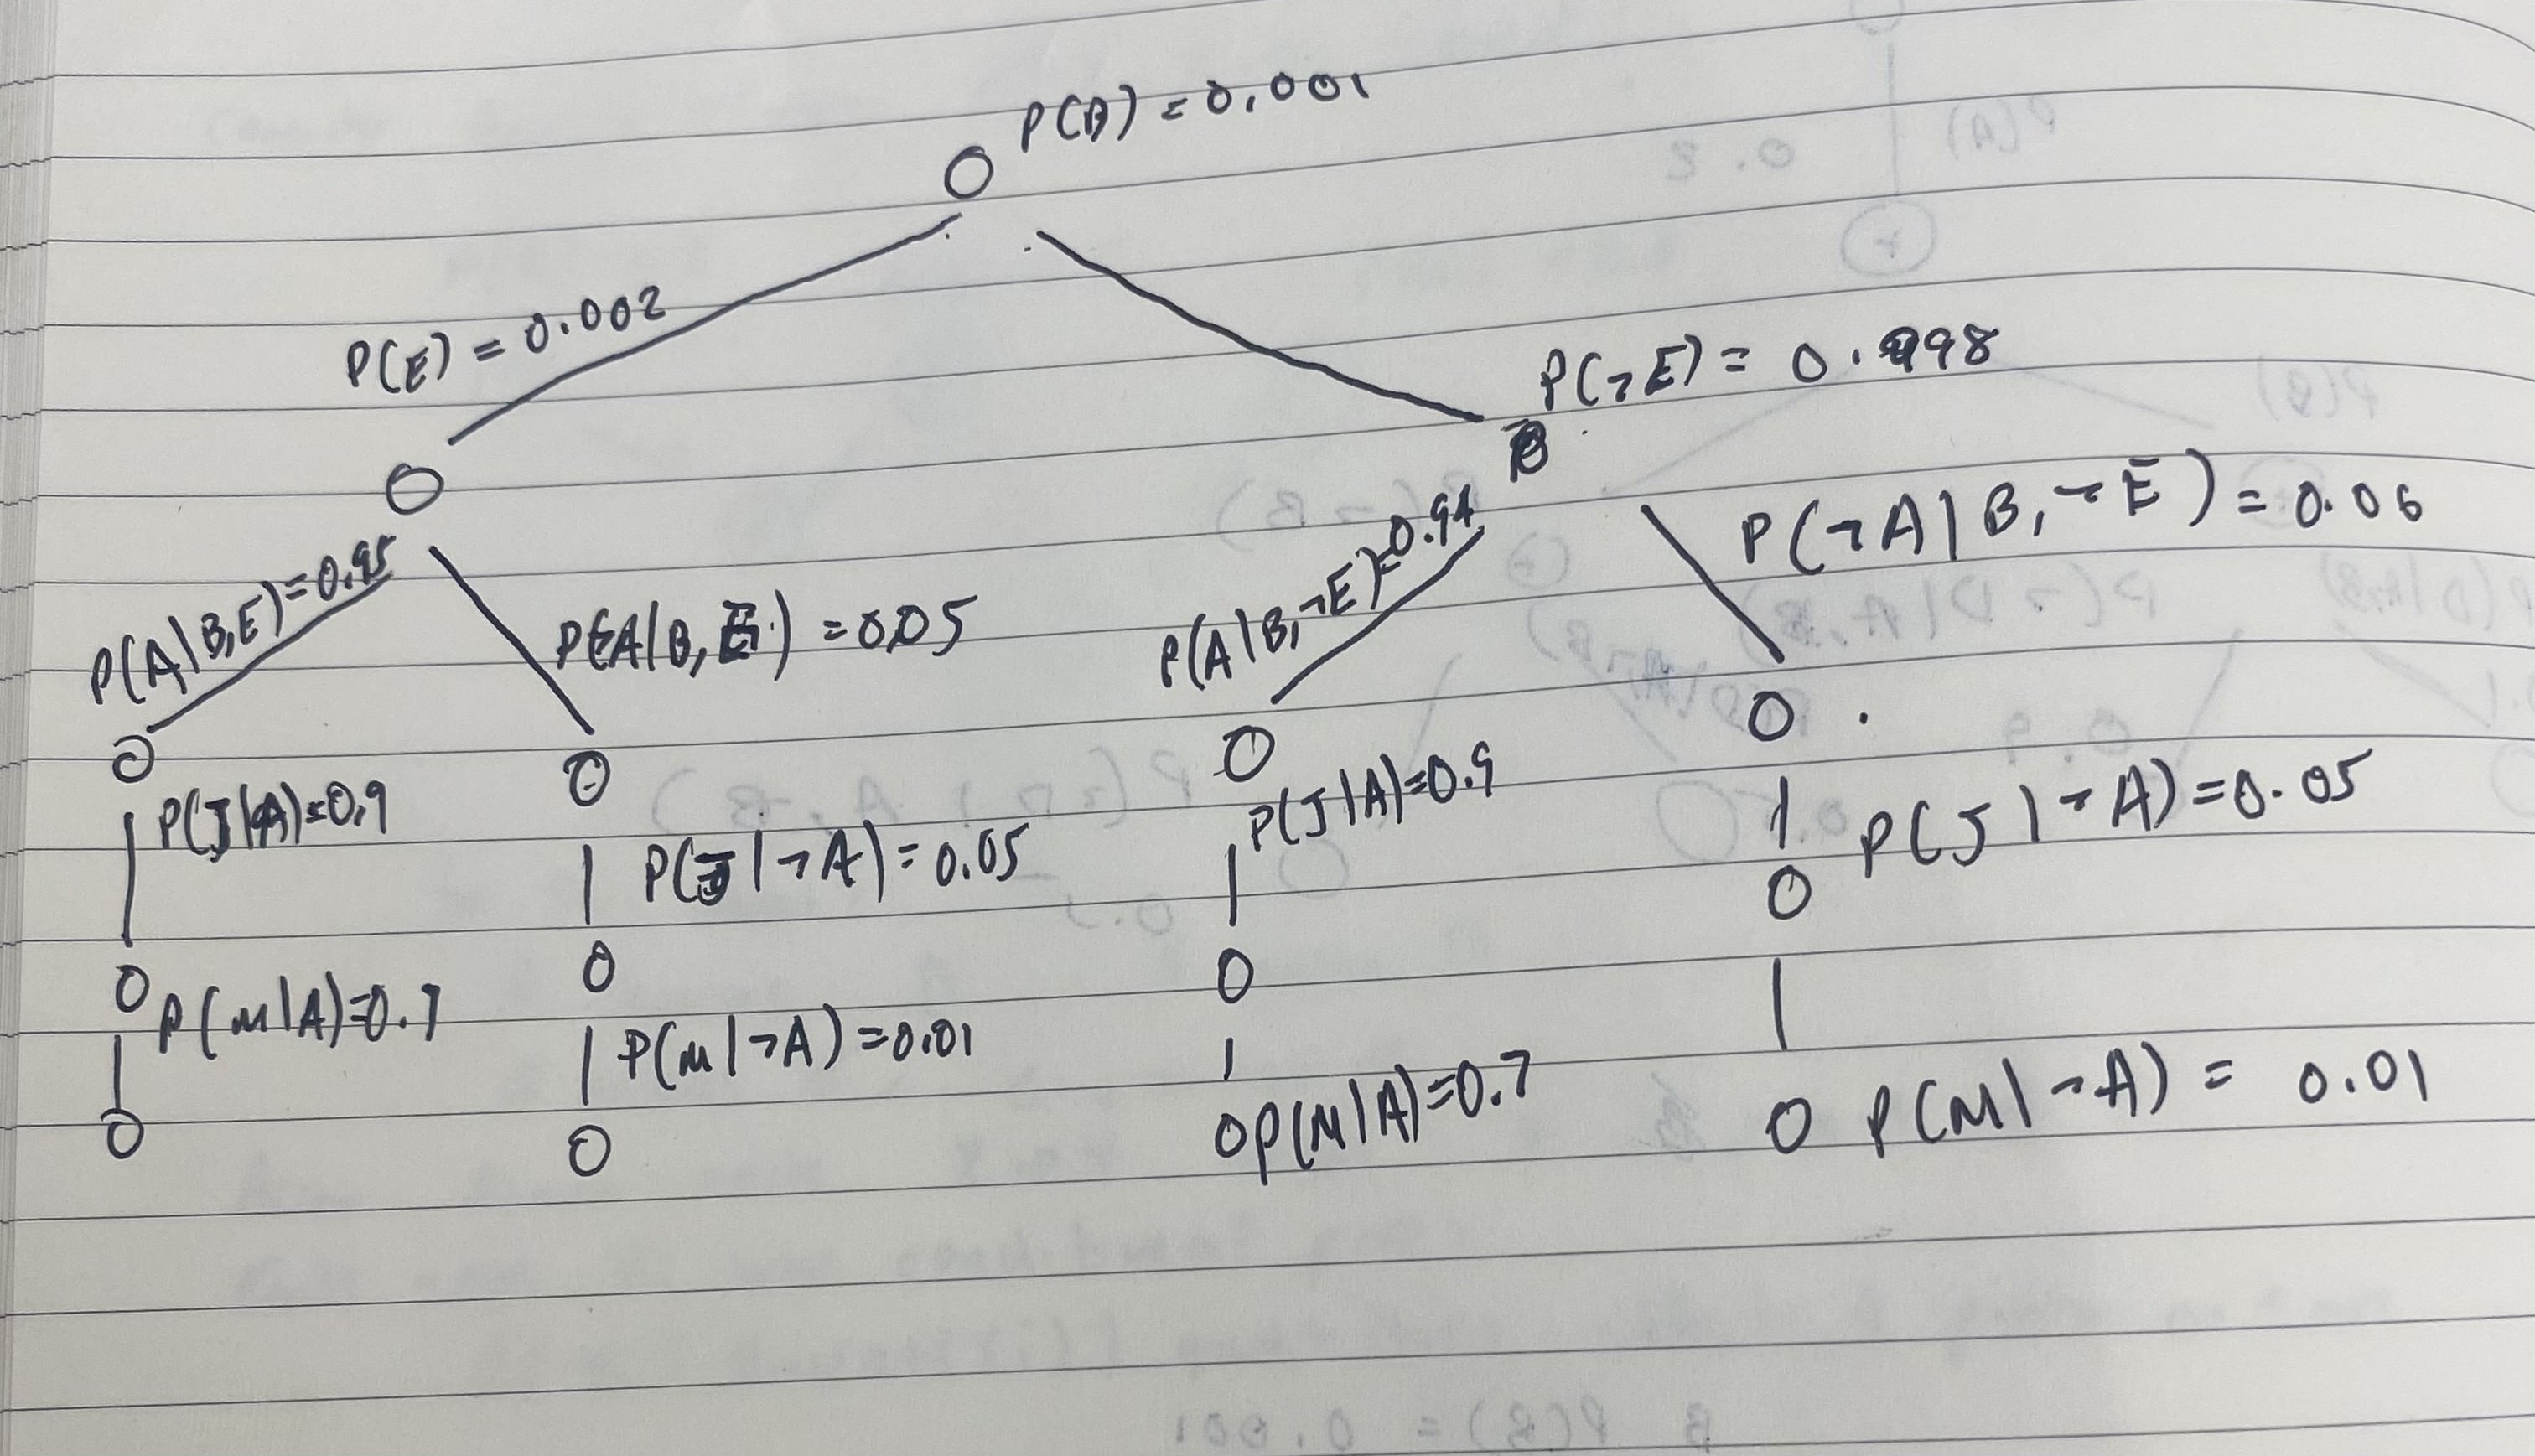 P(B) = 0.001
P(E) = 0.002
P(¬E) = 0.998
P(A|B,E)=0.95
P(¬A|B,E) = 0.05
P(A|B,¬E)=0.94
P(¬A|B,¬E) = 0.06
P(J|A)=0.9
P(J|¬A)=0.05
P(J|A)=0.9
P(J|¬A)=0.05
P(M|A)=0.7
P(M|¬A)=0.01
P(M|A)=0.7
P(M|¬A) = 0.01